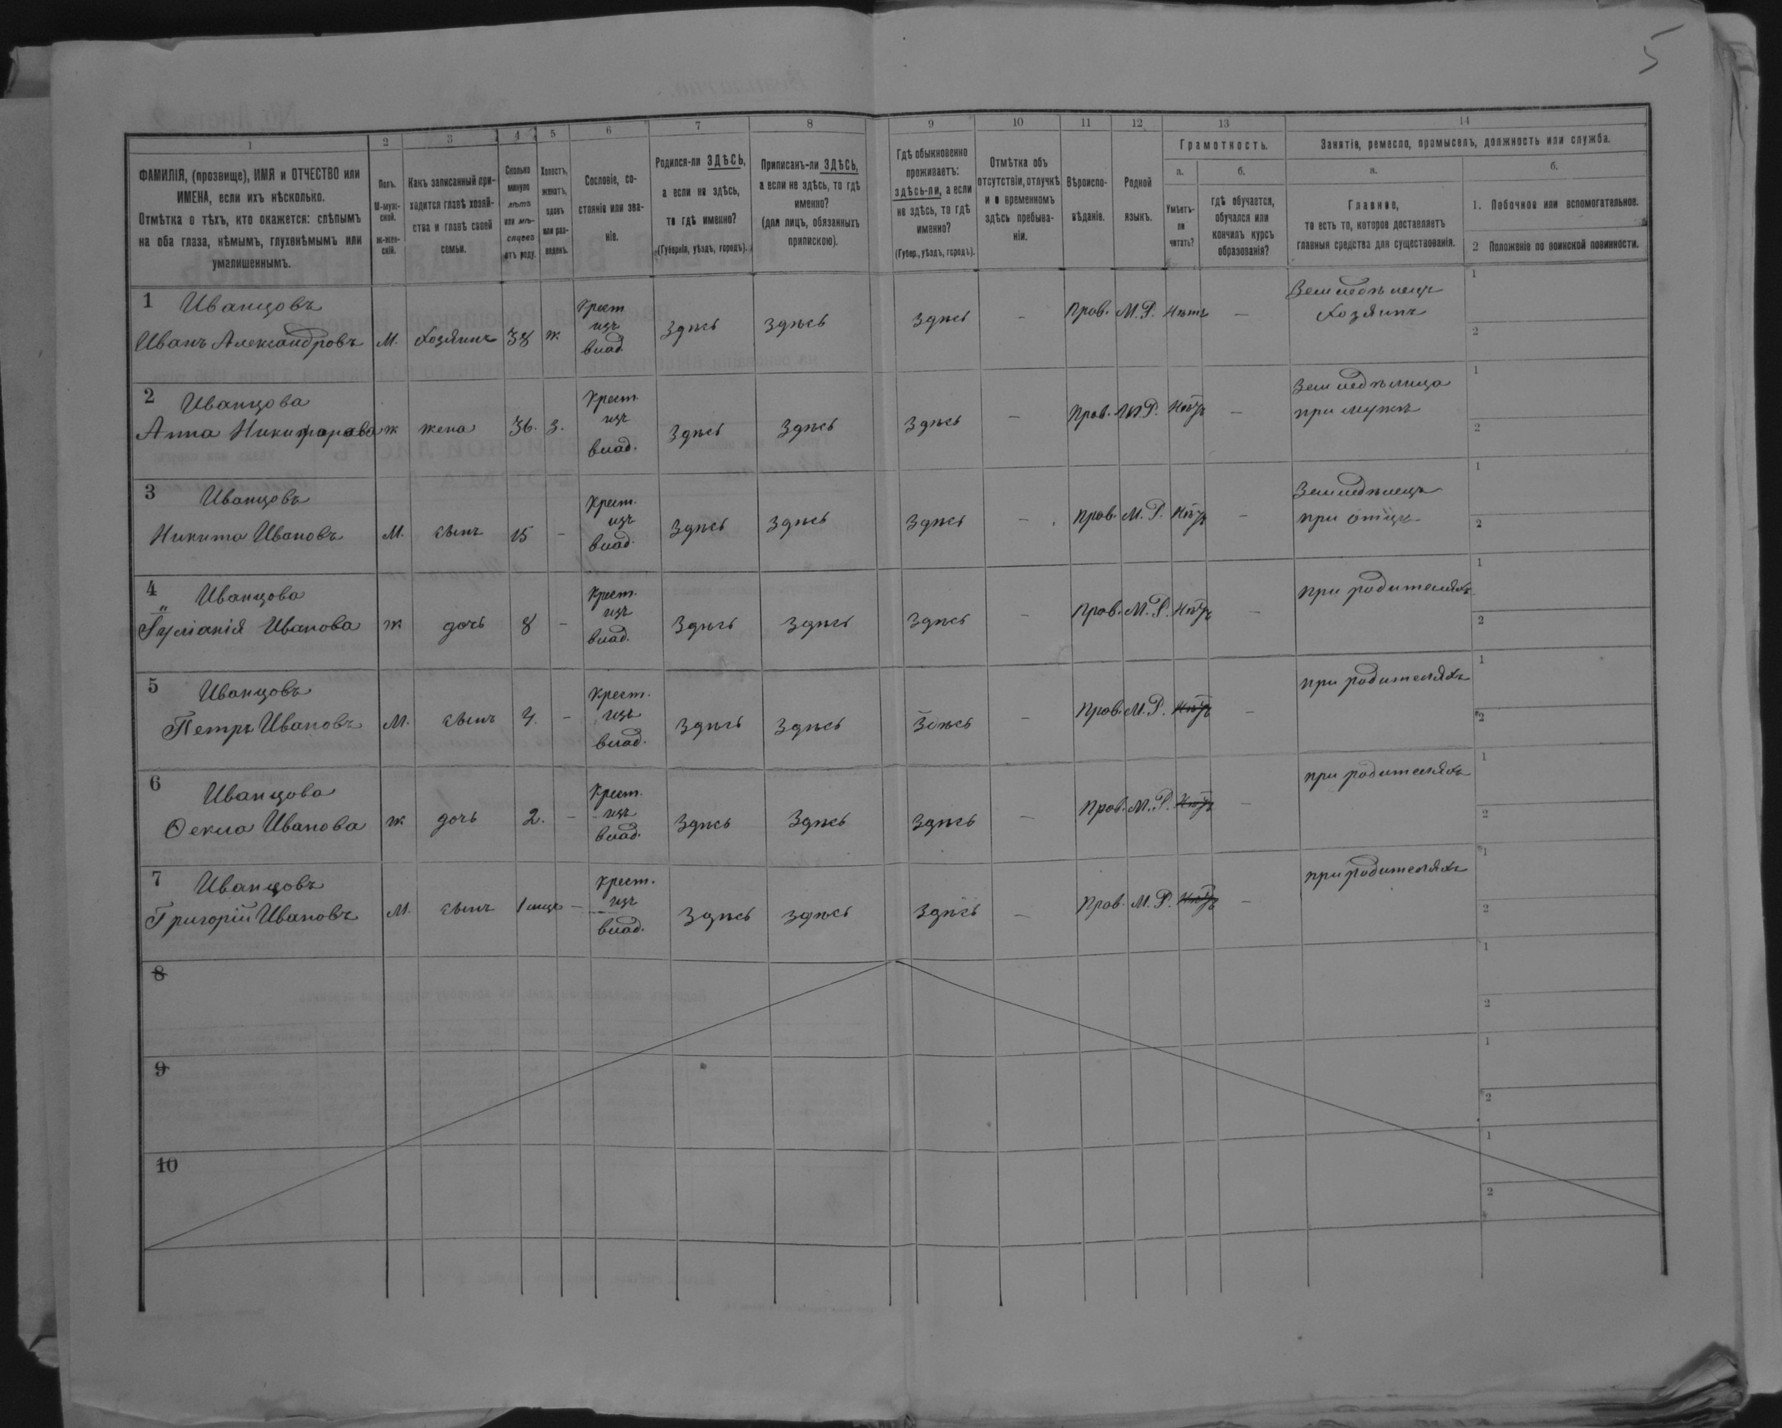 5
1 2 3 4 5 6 7 8 9 10 11 12 13 14
ФАМИЛІЯ, (прозвище), ИМЯ и ОТЧЕСТВО или
ИМЕНА, если ихъ нѣсколько.
Отмѣтка о тѣхъ, кто окажется: слѣпымъ
на оба глаза, нѣмымъ, глухонѣмымъ или
умалишеннымъ.
Полъ.
М-муж-
ской.
ж-жен-
скій.
Какъ записанный при-
ходится главѣ хозяй-
ства и главѣ своей
семьи.
Сколько
минуло
лѣтъ
или мѣ-
сяцевъ
отъ роду.
Холостъ,
женатъ,
вдовъ
или раз-
веденъ.
Сословіе, со-
стояніе или зва-
ніе.
Родился-ли ЗДѢСЬ,
а если не здѣсь,
то гдѣ именно?
(Губернія, уѣздъ, городъ).
Приписанъ-ли ЗДѢСЬ,
а если не здѣсь, то гдѣ
именно?
(для лицъ, обязанныхъ
припискою).
Гдѣ обыкновенно
проживаетъ:
здѣсь-ли, а если
не здѣсь, то гдѣ
именно?
(Губер., уѣздъ, городъ).
Отмѣтка объ
отсутствіи, отлучкѣ
и о временномъ
здѣсь пребыва-
ніи.
Вѣроиспо-
вѣданіе.
Родной
языкъ.
Грамотность.
а.
Умѣетъ-
ли
читать?
б.
гдѣ обучается,
обучался или
кончилъ курсъ
образованія?
Занятія, ремесло, промыселъ, должность или служба.
а.
Главное,
то есть то, которое доставляетъ
главныя средства для существованія.
б.
1. Побочное или вспомогательное.
2 Положеніе по воинской повинности.
1 Иванцовъ
Иванъ Александровъ М. Хозяинъ 38 ж
Крест
изъ
влад.
Здѣсь Здѣсь Здѣсь – Прав. М.Р. Нѣтъ –
Земледѣлецъ
Хозяинъ
1
2
2 Иванцова
Анна Никифорова ж жена 36. з.
Крест.
изъ
влад.
Здѣсь Здѣсь Здѣсь – Прав. М.Р. Нѣтъ –
Земледѣлица
при мужѣ
1
2
3 Иванцовъ
Никита Ивановъ М. сынъ 15 –
Крест.
изъ
влад.
Здѣсь Здѣсь Здѣсь – Прав. М.Р. Нѣтъ –
Земледѣлецъ
при отцѣ
1
2
4 Иванцова
Іуліанія Иванова ж дочь 8 –
Крест.
изъ
влад.
Здѣсь Здѣсь Здѣсь – Прав. М.Р. Нѣтъ –
при родителяхъ
1
2
5 Иванцовъ
Петръ Ивановъ М. сынъ 4. –
Крест.
изъ
влад.
Здѣсь Здѣсь Здѣсь – Прав. М.Р. Нѣтъ –
при родителяхъ
1
2
6 Иванцова
Ѳекла Иванова ж дочь 2. –
Крест.
изъ
влад.
Здѣсь Здѣсь Здѣсь – Прав. М.Р. Нѣтъ –
при родителяхъ
1
2
7 Иванцовъ
Григорій Ивановъ М. сынъ –
Крест.
изъ
влад.
Здѣсь Здѣсь Здѣсь – Прав. М.Р. Нѣтъ –
при родителяхъ
1
2
8
1
2
9
1
2
10
1
2